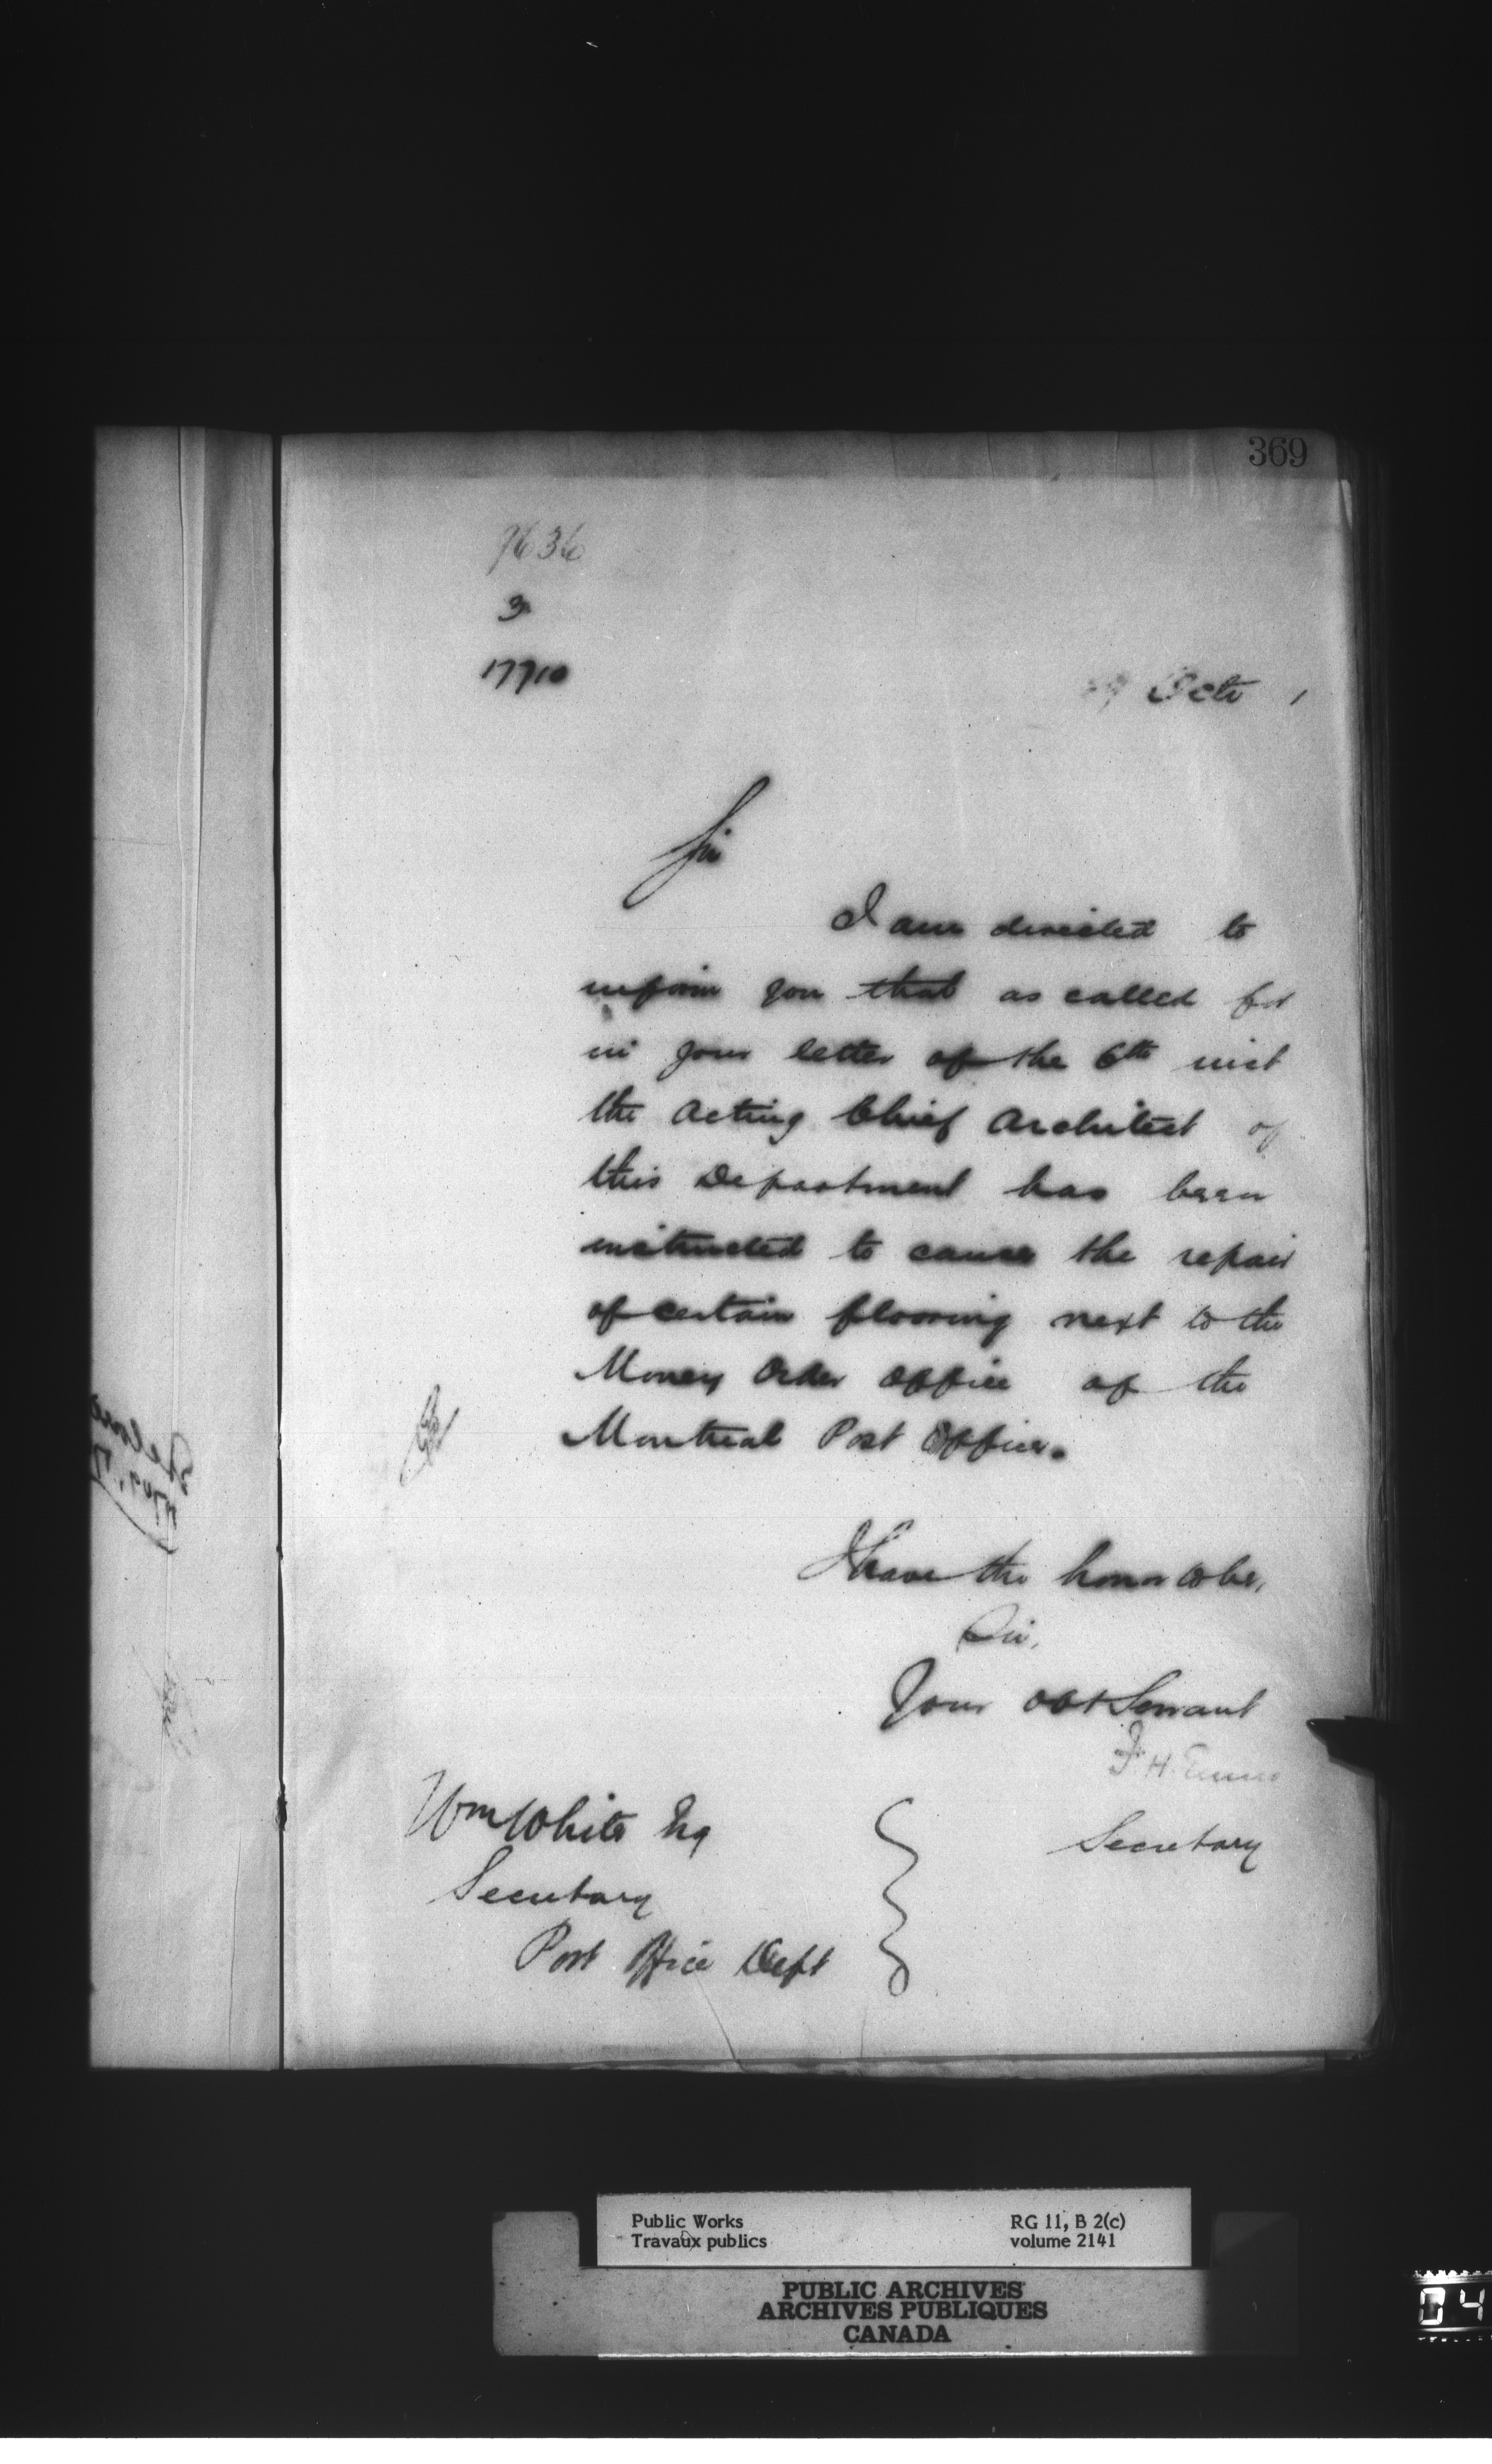 369
7636
3
17710
Octo 1
Sir
I am directed to
inform you that as called for
in your letter of the 6th inst
the Acting Chief Architect of
this Department has been
instructed to cause the repair
of certain flooring next to the
Money Order Office of the
Montreal Post Office.
I have the honor to be,
Sir,
Your obt Servant
F. H. Ennis
Secretary
Wm White Esq
Secretary
Post Office Dept
Public Works RG 11, B 2(c)
Travaux publics volume 2141
PUBLIC ARCHIVES
ARCHIVES PUBLIQUES
CANADA
04